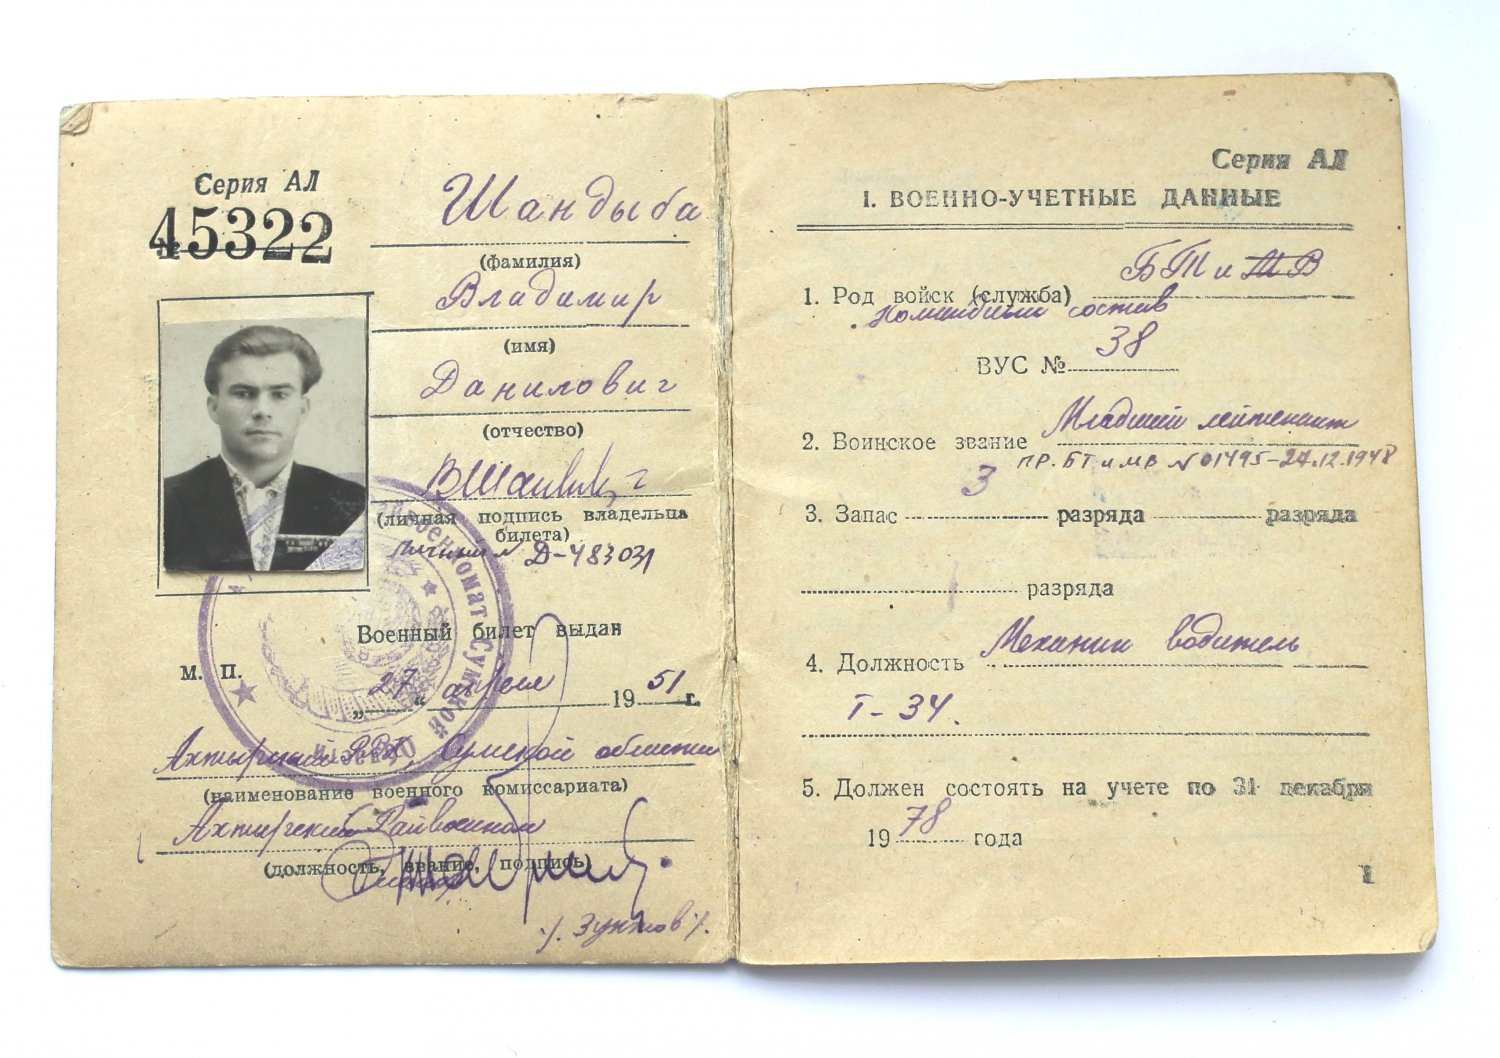 Серия АЛ
45322
Шандыба
(фамилия)
Владимир
(имя)
Данилович
(отчество)
(личная подпись владельца
билета)
Д-483031
Военный билет выдан
М. П.
„27“ апреля 1951 г.
Ахтырский РВК, Сумской области
(наименование военного комиссариата)
Ахтырский Райвоенком
(должность, звание, подпись)
военкомат Сумской области
Серия АЛ
I. ВОЕННО-УЧЕТНЫЕ ДАННЫЕ
1. Род войск (служба) БТ и МВ
состав
ВУС № 38
2. Воинское звание Младший лейтенант
ПР. БТ и МВ №01495-24.12.1948
3. Запас 3 разряда разряда
разряда
4. Должность Механик водитель
Т-34.
5. Должен состоять на учете по 31 декабря
1978 года
1